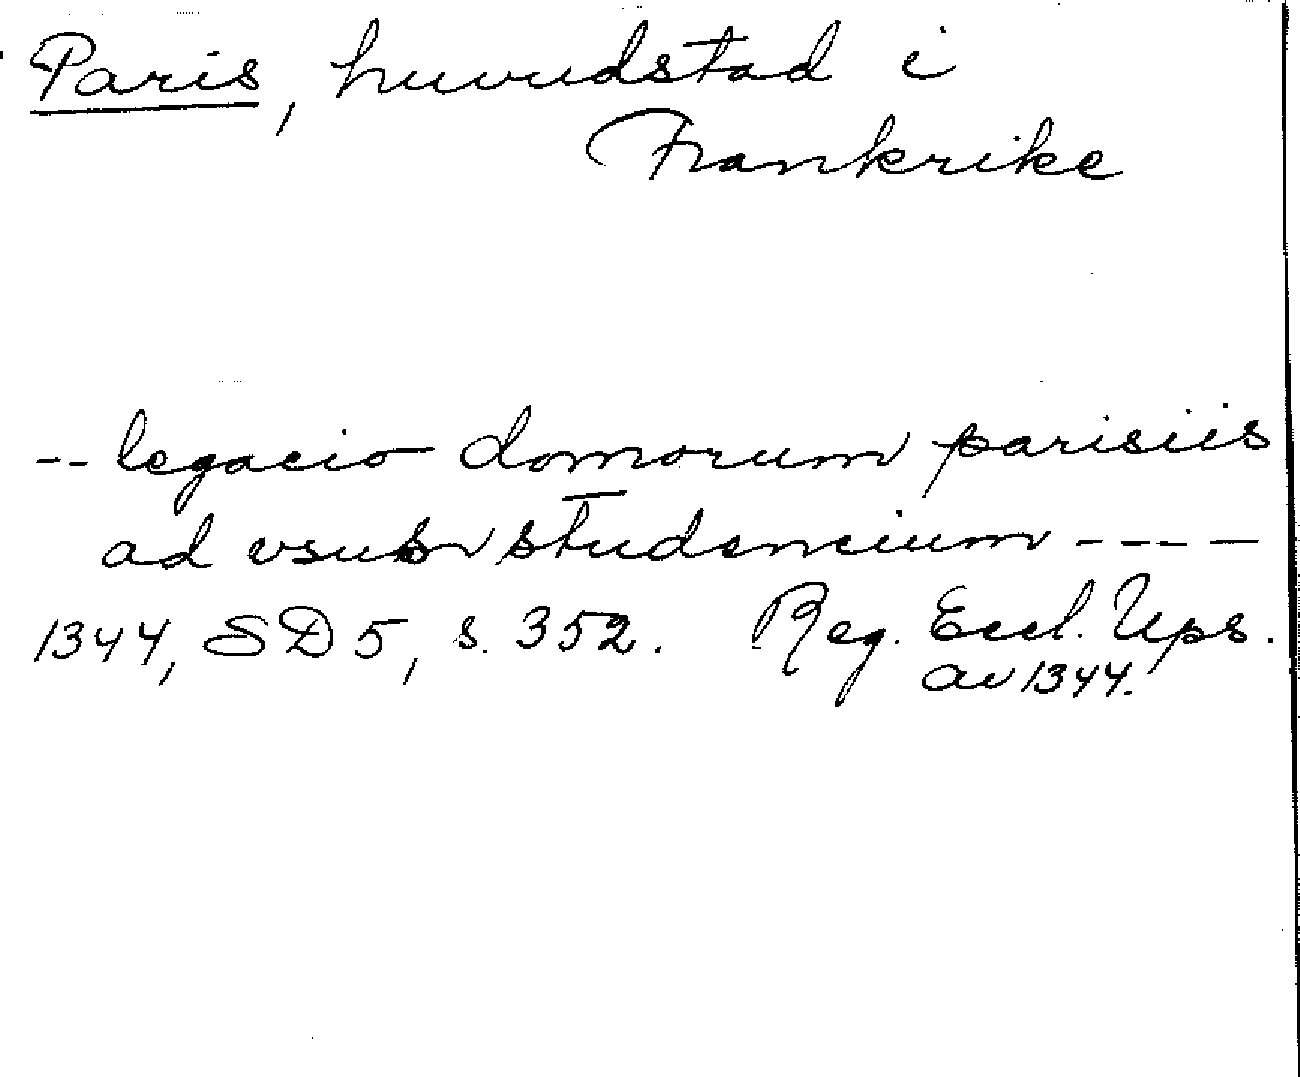 Paris, huvudstad i
Frankrike
-- legacio domorum parisiis
ad vsum studencium ----
1344, SD 5, s. 352. Reg. Eccl. Ups.
av 1344.